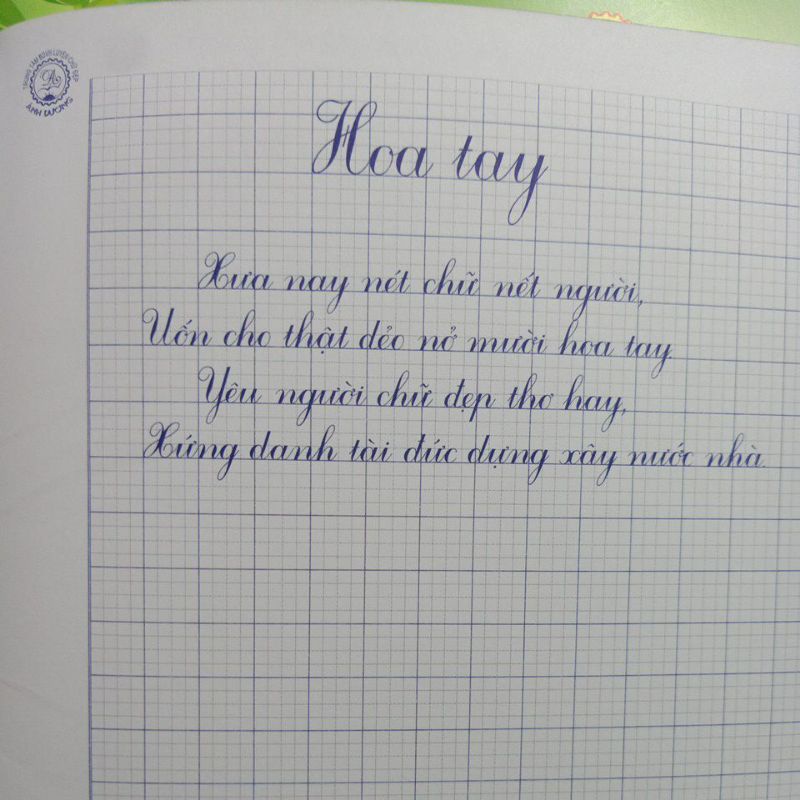 TRUNG TÂM RÈN LUYỆN CHỮ ĐẸP
ÁNH DƯƠNG
Hoa tay
Xưa nay nét chữ nết người,
Uốn cho thật dẻo nở mười hoa tay.
Yêu người chữ đẹp thơ hay,
Xứng danh tài đức dựng xây nước nhà.